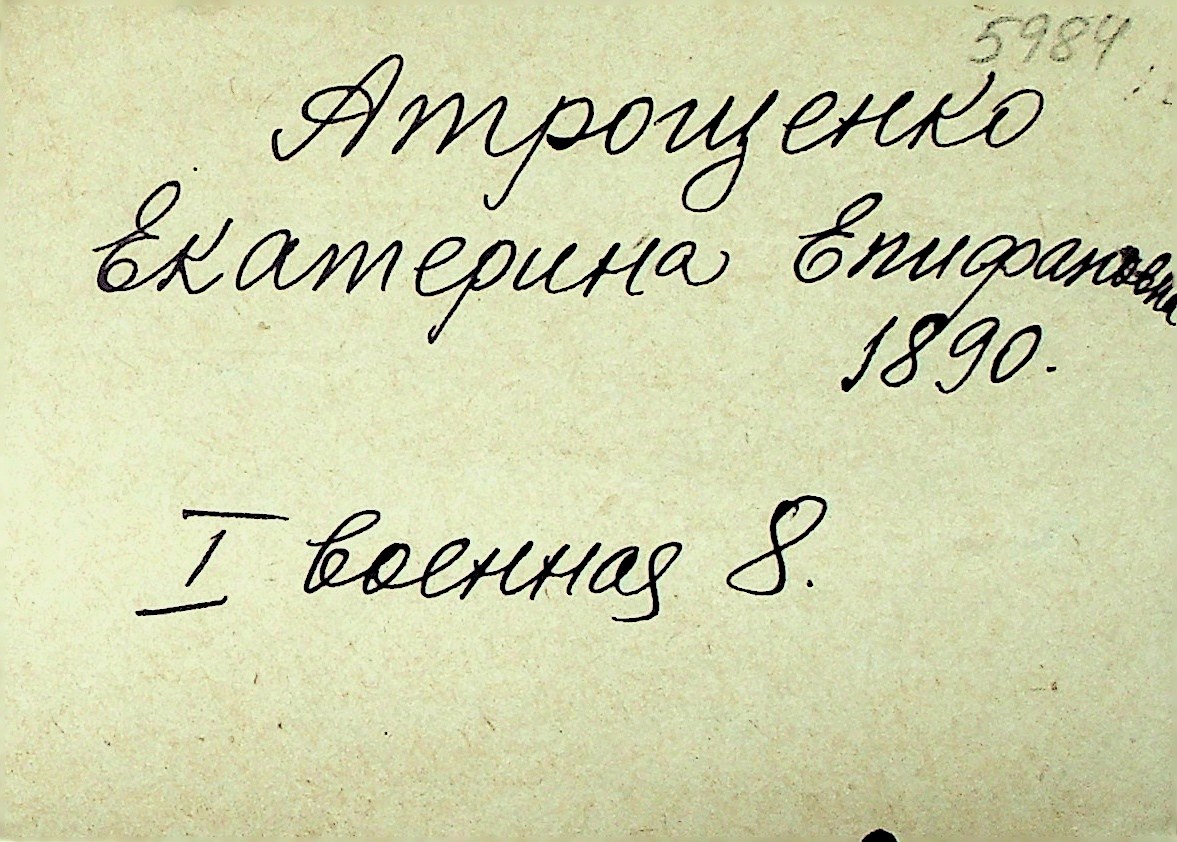 5984
Атрощенко
Екатерина Епифановна
1890.
I военная 8.